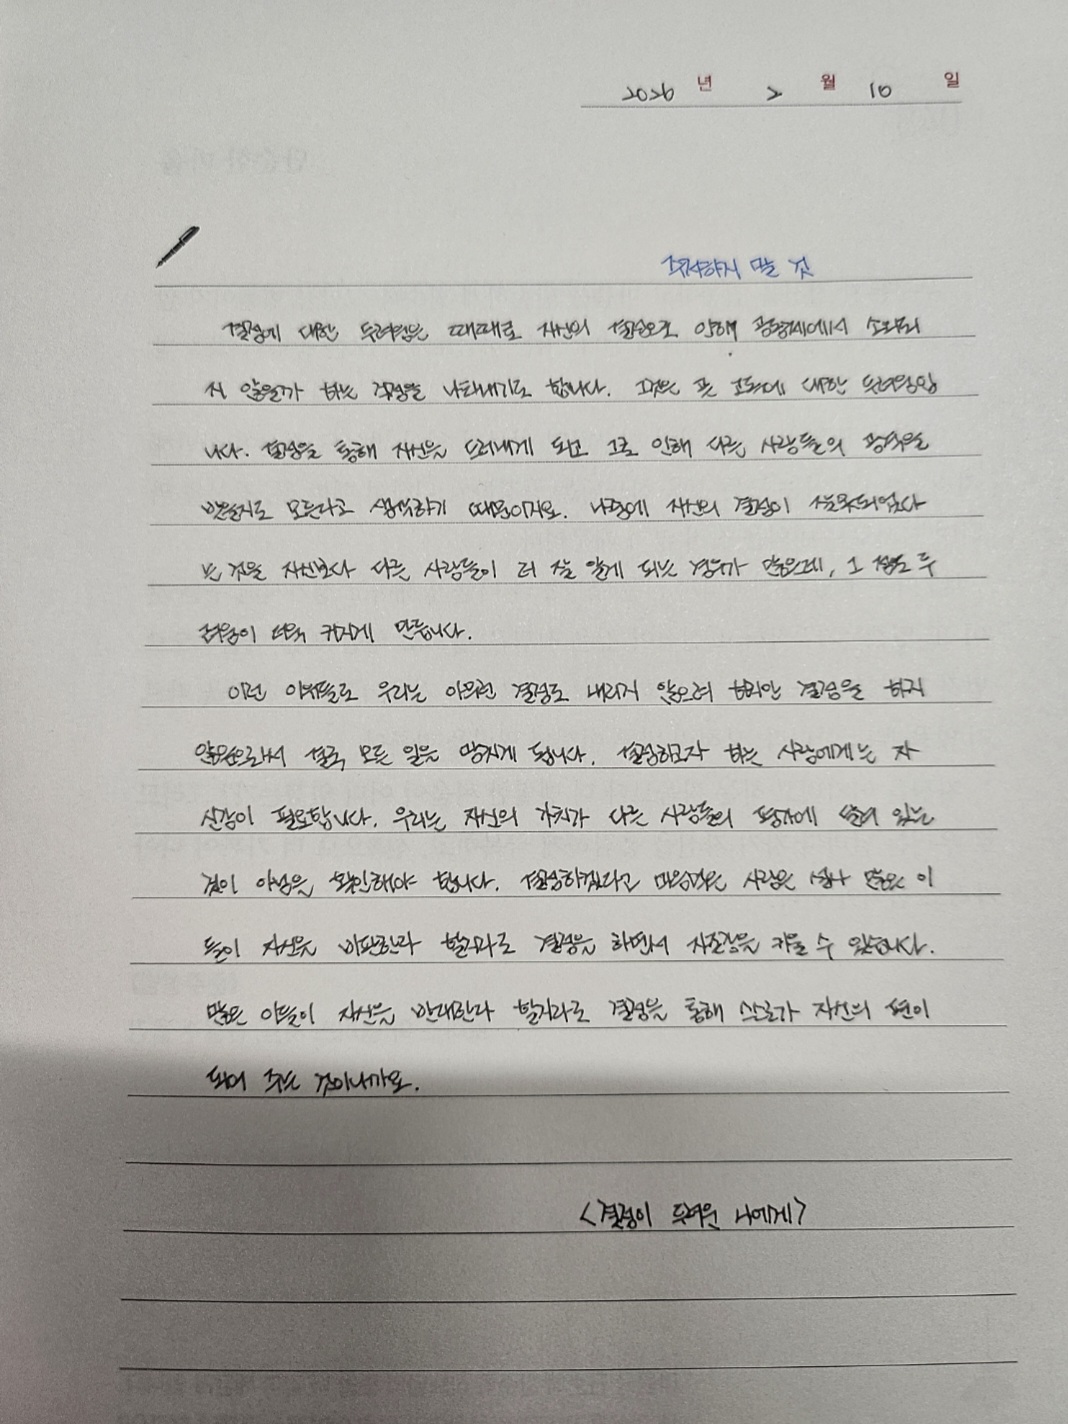 2026 년 2 월 10 일
주저하지 말 것
결정에 대한 두려움은 때때로 자신의 결정으로 인해 공동체에서 소외되
지 않을까 하는 걱정을 나타내기도 합니다. 그것은 곧 고독에 대한 두려움입
니다. 결정을 통해 자신을 드러내게 되고 그로 인해 다른 사람들의 공격을
받을지도 모른다고 생각하기 때문이지요. 나중에 자신의 결정이 잘못되었다
는 것을 자신보다 다른 사람들이 더 잘 알게 되는 경우가 많은데, 그 점도 두
려움이 더욱 커지게 만듭니다.
이런 이유들로 우리는 아무런 결정도 내리지 않으려 하지만 결정을 하지
않음으로써 결국 모든 일을 망치게 됩니다. 결정하고자 하는 사람에게는 자
신감이 필요합니다. 우리는 자신의 가치가 다른 사람들의 평가에 달려 있는
것이 아님을 확인해야 합니다. 결정하겠다고 마음먹은 사람은 설사 많은 이
들이 자신을 비판한다 할지라도 결정을 하면서 자존감을 키울 수 있습니다.
많은 이들이 자신을 반대한다 할지라도 결정을 통해 스스로가 자신의 편이
되어 주는 것이니까요.
<결정이 두려운 나에게>